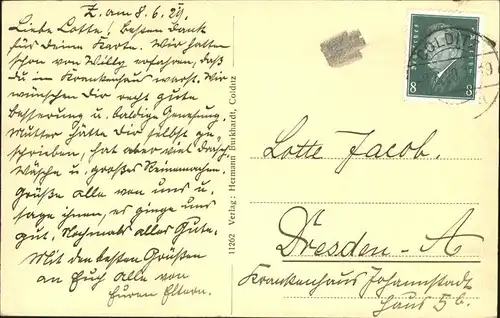 Z. am 8. 6. 29.
Liebe Lotte! Besten Dank
für Deine Karte. Wir hatten
schon von Willy erfahren, daß
du im Krankenhaus warst. Wir
wünschen Dir recht gute
Besserung u. baldige Genesung.
Mutter hätte Dir selbst ge-
schrieben, hat aber viel
Wäsche u. großes Reinemachen.
Grüße alle von uns u.
sage ihnen, es ginge uns
gut. Nochmals alles Gute.
Mit den besten Grüßen
an Euch alle von
Euren Eltern.
11262 Verlag: Hermann Burkhardt, Colditz
COLDITZ
8 8
Lotte Jacob.
Dresden-A
Krankenhaus Johannstadt
Haus 5b.